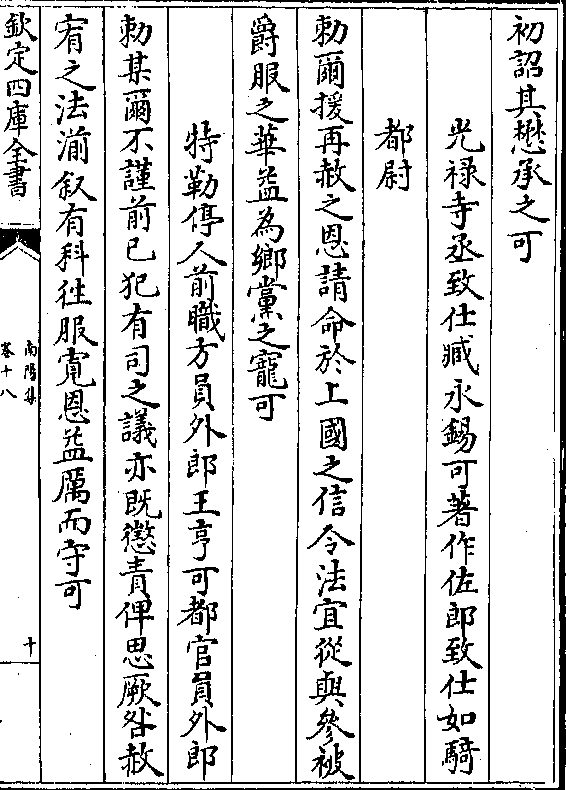 初詔其懋承之可
光禄寺丞致仕臧永錫可著作佐郎致仕如騎
都尉
勅爾援再赦之恩請命於上國之信令法宜從與參被
爵服之華益為鄉黨之寵可
特勒停人前職方員外郎王亨可都官員外郎
勅某爾不謹前已犯有司之議亦既懲責俾思厥咎赦
宥之法湔叙有科徃服寛恩益厲而守可
欽定四庫全書
南陽集
卷十八
十